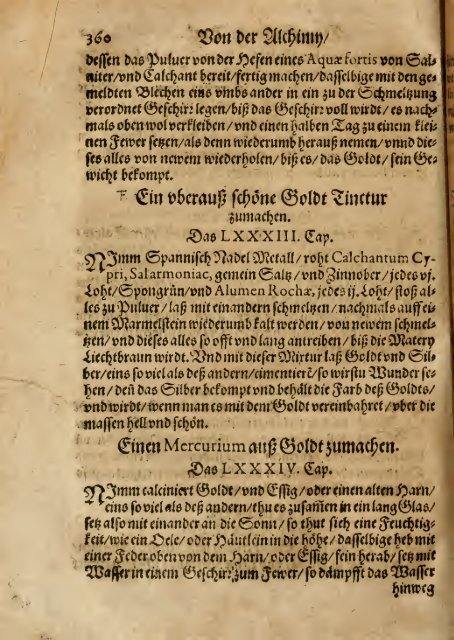 360 Von der Alchimy/
dessen das Puluer von der Hefen eines Aquæ fortis von Sal-
niter/vnd Calchant bereit/fertig machen/dasselbige mit den ge-
meldten Blechen eins vmbs ander in ein zu der Schmeltzung
verordnet Geschir: legen/biß das Geschir: voll wirdt/es nach-
mals oben wol verkleiben/vnd einen halben Tag zu einem klei-
nen Fewer setzen/als denn wiederumb herauß nemen/vnnd die-
ses alles von newem wiederholen/biß es/das Goldt/sein Ge-
wicht bekompt.
Ein vberauß schöne Goldt Tinctur
zumachen.
Das LXXXIII. Cap.
NImm Spannisch Nadel Metall/roht Calchantum Cy-
pri, Salarmoniac, gemein Saltz/vnd Zinnober/jedes vj.
Loht/Spongrün/vnd Alumen Rochæ, jedes ij. Loht/stoß al-
les zu Puluer/laß mit einandern schmeltzen/nachmals auff ei-
nem Marmelstein wiederumb kalt werden/von newem schmel-
tzen/vnd dieses alles so offt vnd lang antreiben/biß die Matery
Liechtbraun wirdt. Vnd mit dieser Mixtur laß Goldt vnd Sil-
ber/eins so viel als deß andern/cimentiert/so wirstu Wunder se-
hen/deñ das Silber bekompt vnd behält die Farb deß Goldts/
vnd wirdt/wenn man es mit dem Goldt vereinbahret/vber die
massen hell vnd schön.
Einen Mercurium auß Goldt zumachen.
Das LXXXIV. Cap.
NImm calciniert Goldt/vnd Essig/oder einen alten Harn/
eins so viel als deß andern/thu es zusam̃en in ein lang Glas/
setz also mit einander an die Sonn/so thut sich eine Feuchtig-
keit/wie ein Oele/oder Häutlein in die höhe/dasselbige heb mit
einer Feder oben von dem Harn/oder Essig/fein herab/setz mit
Wasser in einem Geschir: zum Fewer/so dämpfft das Wasser
hinweg